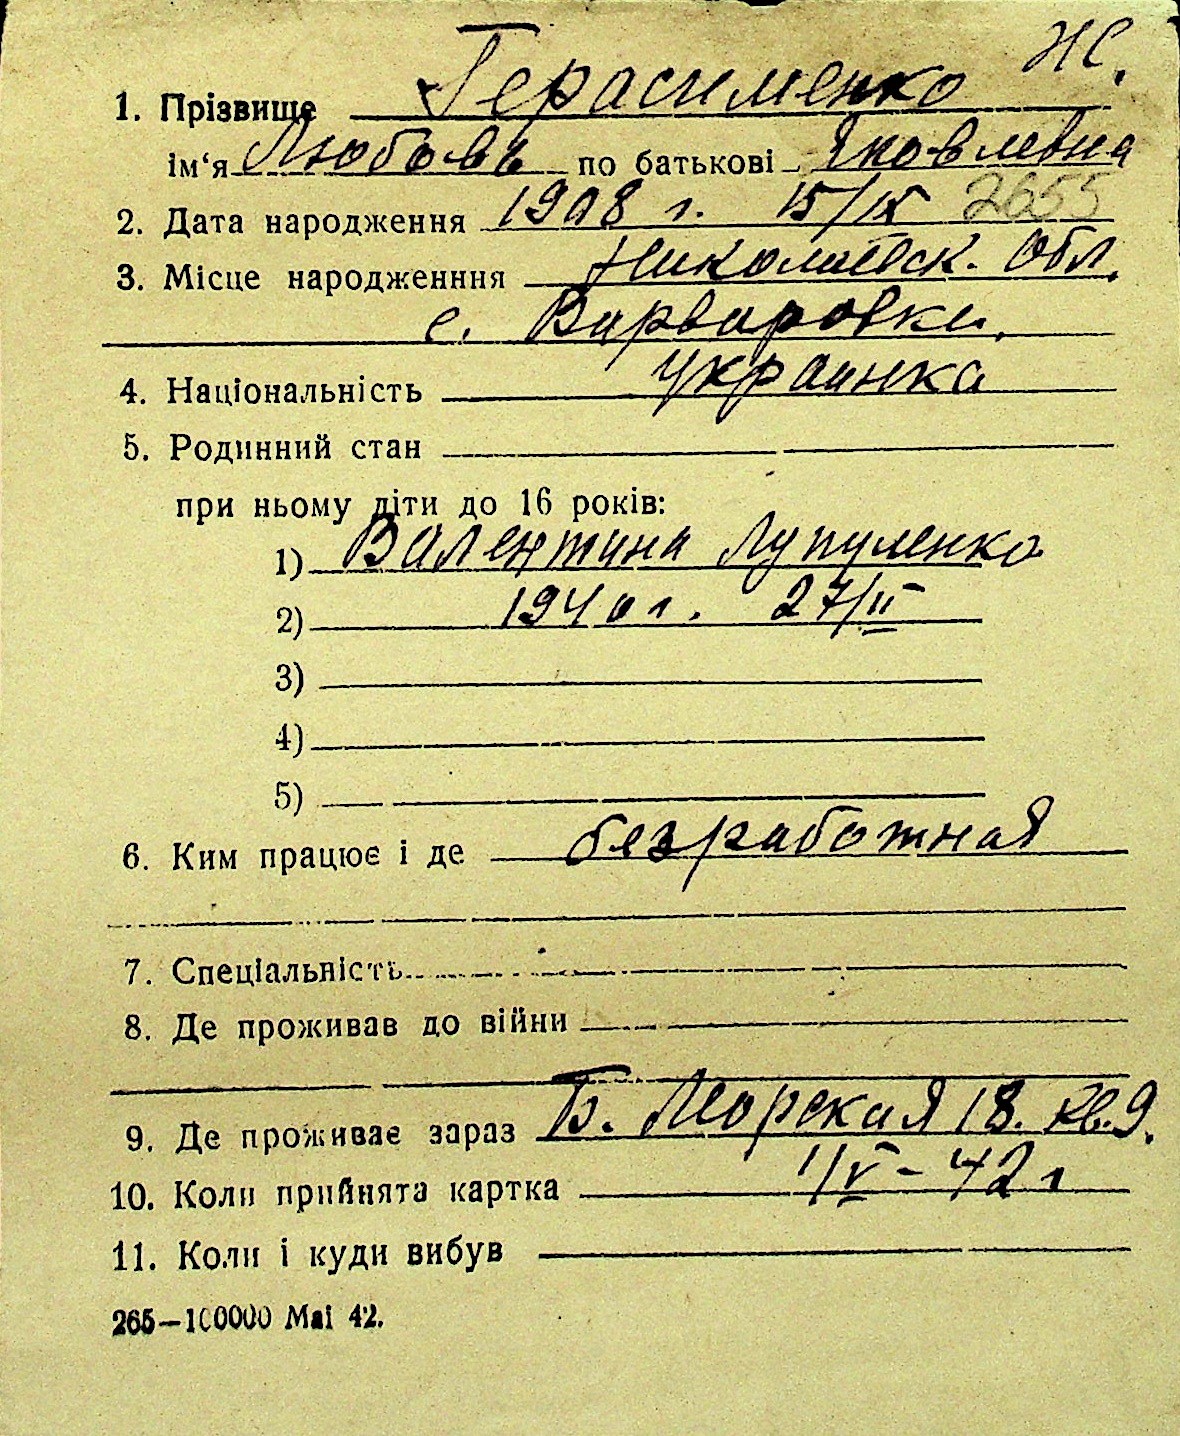 Ж.
1. Прізвище Герасименко
ім'я Любовь по батькові Яковлевна
2. Дата народження 1908 г. 15/IX 2655
3. Місце народженння Николаевск. Обл.
с. Варваровка.
4. Національність украинка
5. Родинний стан
при ньому діти до 16 років:
1) Валентина Лупуленко
2) 1940 г. 27/II
3)
4)
5)
6. Ким працює і де безработная
7. Спеціальність
8. Де проживав до війни
9. Де проживає зараз Б. Морская 18. кв. 9.
10. Коли прийнята картка 1/V - 42 г
11. Коли і куди вибув
265—100000 Маі 42.